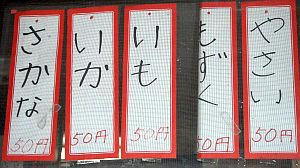 やさい
50円
もずく
50円
いも
50円
いか
50円
さかな
50円